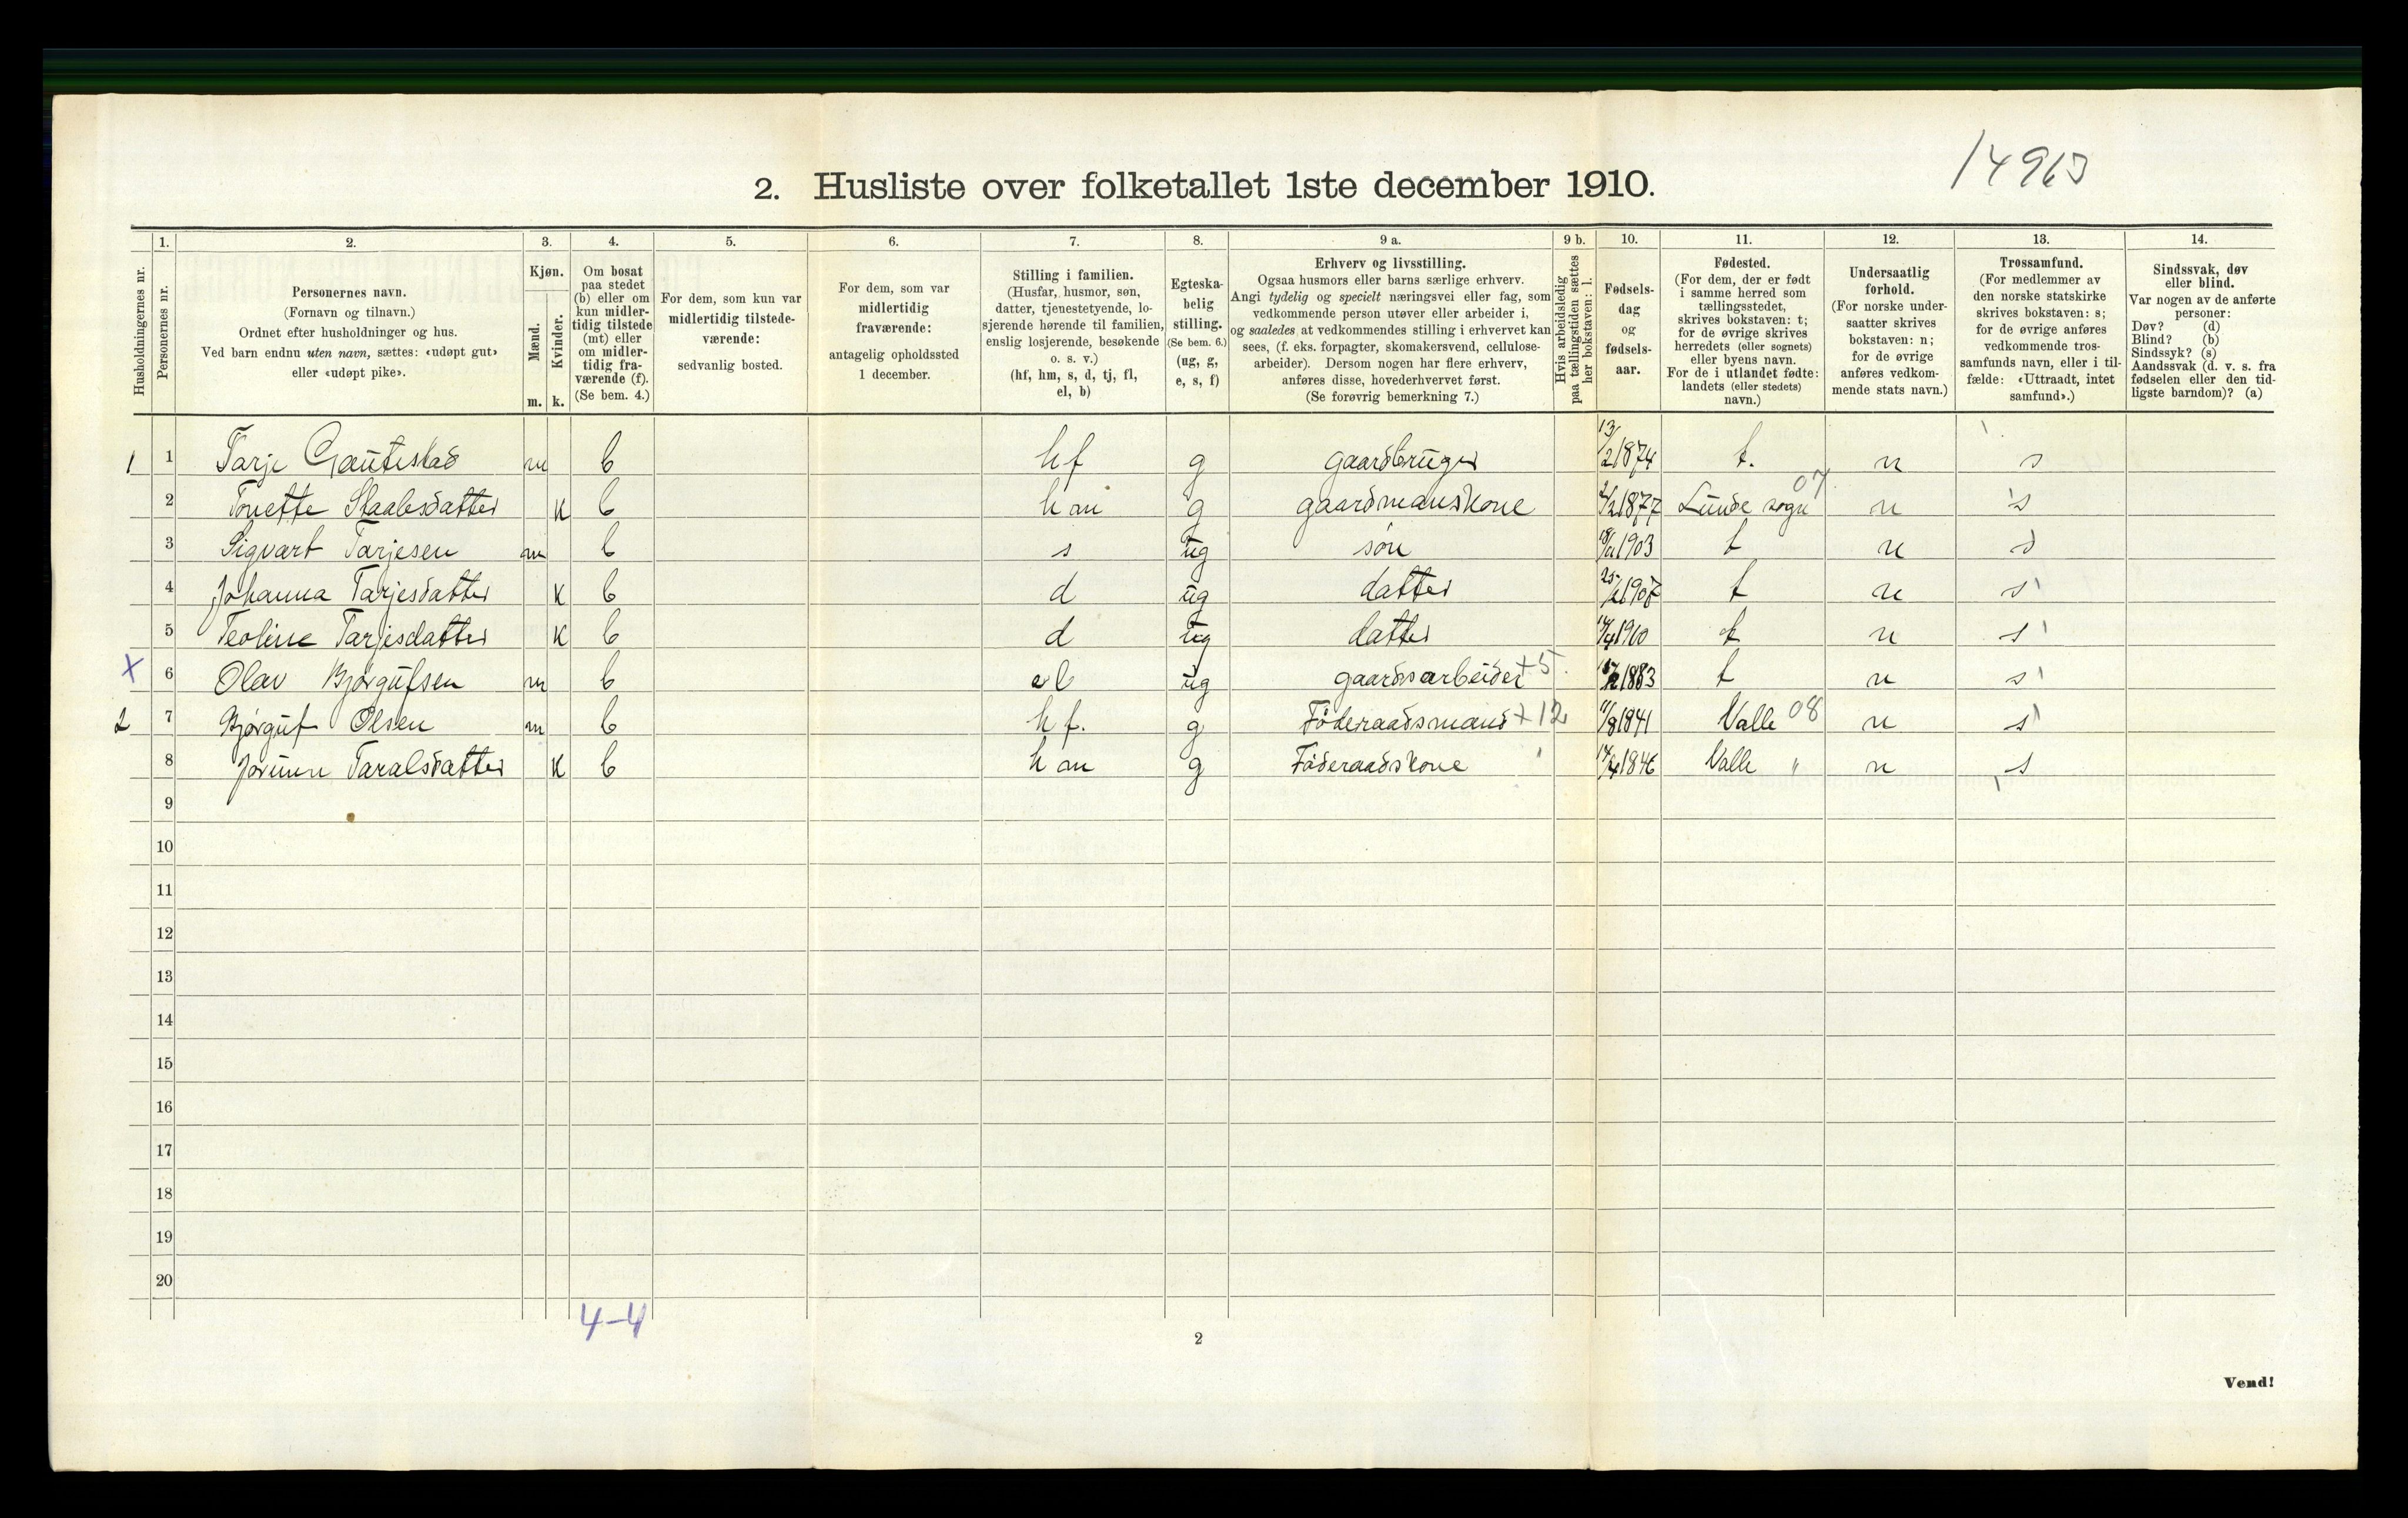 14963
2. Husliste over folketallet 1ste december 1910.
Husholdningernes nr.
1.
Personernes nr.
2.
Personernes navn.
(Fornavn og tilnavn.)
Ordnet efter husholdninger og hus.
Ved barn endnu uten navn, sættes: «udøpt gut»
eller «udøpt pike».
3.
Kjøn.
Mænd.
Kvinder.
m. k.
4.
Om bosat
paa stedet
(b) eller om
kun midler-
tidig tilstede
(mt) eller
om midler-
tidig fra-
værende (f).
(Se bem. 4.)
5.
For dem, som kun var
midlertidig tilstede-
værende:
sedvanlig bosted.
6.
For dem, som var
midlertidig
fraværende:
antagelig opholdssted
1 december.
7.
Stilling i familien.
(Husfar, husmor, søn,
datter, tjenestetyende, lo-
sjerende hørende til familien,
enslig losjerende, besøkende
o. s. v.)
(hf, hm, s, d, tj, fl,
el, b)
8.
Egteska-
belig
stilling.
(Se bem. 6.)
(ug, g,
e, s, f)
9 a.
Erhverv og livsstilling.
Ogsaa husmors eller barns særlige erhverv.
Angi tydelig og specielt næringsvei eller fag, som
vedkommende person utøver eller arbeider i,
og saaledes at vedkommendes stilling i erhvervet kan
sees, (f. eks. forpagter, skomakersvend, cellulose-
arbeider). Dersom nogen har flere erhverv,
anføres disse, hovederhvervet først.
(Se forøvrig bemerkning 7.)
9 b.
Hvis arbeidsledig
paa tællingstiden sættes
her bokstaven: l.
10.
Fødsels-
dag
og
fødsels-
aar.
11.
Fødested.
(For dem, der er født
i samme herred som
tællingsstedet,
skrives bokstaven: t;
for de øvrige skrives
herredets (eller sognets)
eller byens navn.
For de i utlandet fødte:
landets (eller stedets)
navn.)
12.
Undersaatlig
forhold.
(For norske under-
saatter skrives
bokstaven: n;
for de øvrige
anføres vedkom-
mende stats navn.)
13.
Trossamfund.
(For medlemmer av
den norske statskirke
skrives bokstaven: s;
for de øvrige anføres
vedkommende tros-
samfunds navn, eller i til-
fælde: «Uttraadt, intet
samfund».)
14.
Sindssvak, døv
eller blind.
Var nogen av de anførte
personer:
Døv? (d)
Blind? (b)
Sindssyk? (s)
Aandssvak (d. v. s. fra
fødselen eller den tid-
ligste barndom)? (a)
1 1 Tarje Gautestad m b hf g gaardbruger 13/2 1874 t. n s
2 Tonette Staalesdatter k b hm g gaardmanskone 1877 Lunde sogn 07 n s
3 Sigvart Tarjesen m b s ug søn 1903 t n s
4 Johanna Tarjesdatter k b d ug datter 1907 t n s
5 Teoline Tarjesdatter k b d ug datter 1910 t n s
X 6 Olav Bjørgufsen m b el ug gaardsarbeider +5. 1883 t n s
2 7 Bjørguf Olsen m b hf. g Föderaadsmand +12 11/8 1841 Valle 08 n s
8 Jorunn Taralsdatter k b hm g Föderaadskone " 14/4 1846 Valle " n s
9
10
11
12
13
14
15
16
17
18
19
20
4-4
2
Vend!